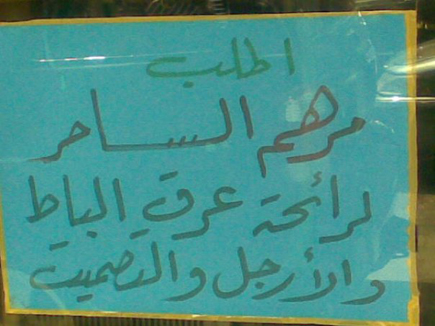 اطلب
مرهم الساحر
لرائحة عرق الباط
والأرجل والتصميت